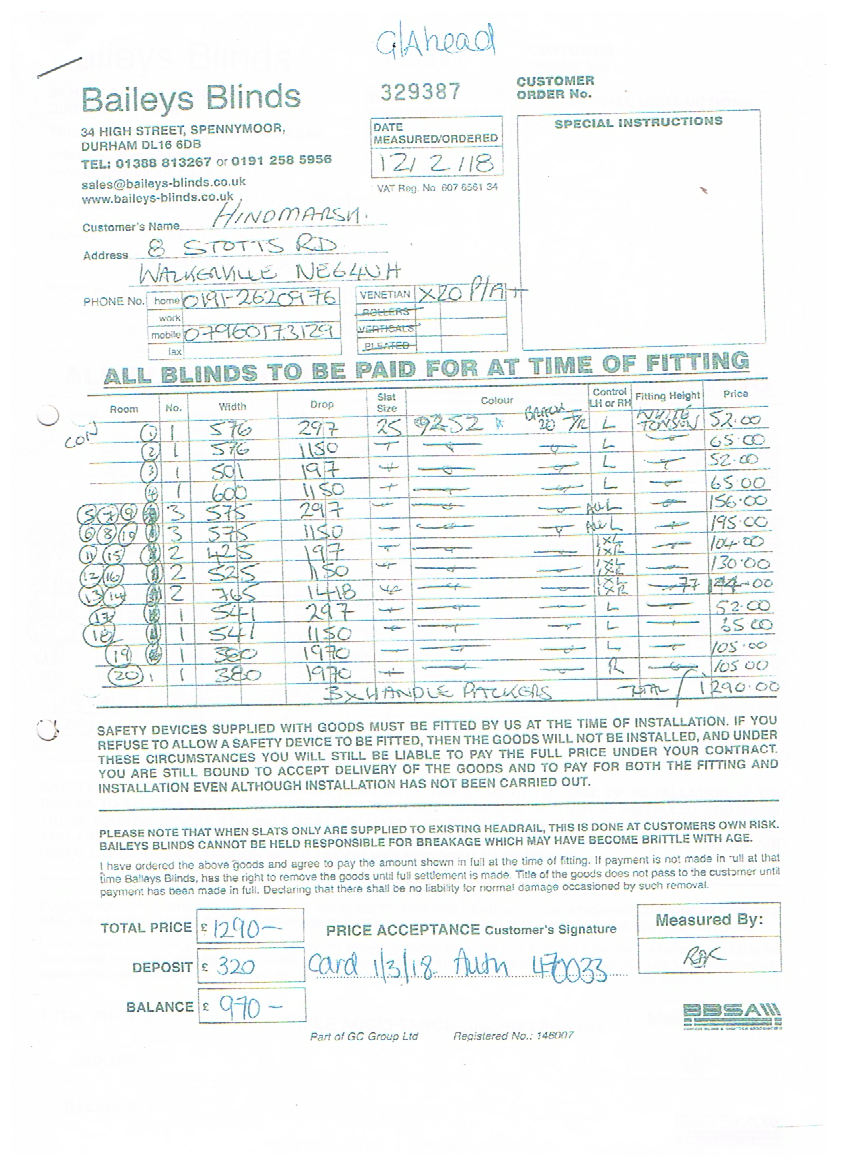 G/Ahead
Baileys Blinds
329387
CUSTOMER
ORDER No.
34 HIGH STREET, SPENNYMOOR,
DURHAM DL16 6DB
TEL: 01388 813267 or 0191 258 5956
sales@baileys-blinds.co.uk
www.baileys-blinds.co.uk
DATE
MEASURED/ORDERED
12/2/18
VAT Reg. No. 607 6561 34
SPECIAL INSTRUCTIONS
Customer's Name HINDMARSH.
Address 8 STOTTS RD
WALKERVILLE NE6 4UH
PHONE No. home 0191-2620976
work
mobile 07960173129
fax
VENETIAN X20 P/A
ROLLERS
VERTICALS
PLEATED
ALL BLINDS TO BE PAID FOR AT TIME OF FITTING
Room No. Width Drop Slat Size Colour Control LH or RH Fitting Height Price
CON 1 1 576 297 25 9252 L WHITE 52.00
2 1 576 1150 L 65.00
3 1 501 197 L 52.00
4 1 600 1150 L 65.00
5 7 9 3 575 297 ALL L 156.00
6 8 10 3 575 1150 ALL L 195.00
11 15 2 425 197 1XL 1XR 104.00
12 16 2 525 1150 1XL 1XR 130.00
13 14 2 765 1418 1XL 1XR 77 144.00
17 1 541 297 L 52.00
18 1 541 1150 L 65.00
19 1 380 1970 L 105.00
20 1 380 1970 R 105.00
3X HANDLE PACKERS TOTAL £1290.00
SAFETY DEVICES SUPPLIED WITH GOODS MUST BE FITTED BY US AT THE TIME OF INSTALLATION. IF YOU
REFUSE TO ALLOW A SAFETY DEVICE TO BE FITTED, THEN THE GOODS WILL NOT BE INSTALLED, AND UNDER
THESE CIRCUMSTANCES YOU WILL STILL BE LIABLE TO PAY THE FULL PRICE UNDER YOUR CONTRACT.
YOU ARE STILL BOUND TO ACCEPT DELIVERY OF THE GOODS AND TO PAY FOR BOTH THE FITTING AND
INSTALLATION EVEN ALTHOUGH INSTALLATION HAS NOT BEEN CARRIED OUT.
PLEASE NOTE THAT WHEN SLATS ONLY ARE SUPPLIED TO EXISTING HEADRAIL, THIS IS DONE AT CUSTOMERS OWN RISK.
BAILEYS BLINDS CANNOT BE HELD RESPONSIBLE FOR BREAKAGE WHICH MAY HAVE BECOME BRITTLE WITH AGE.
I have ordered the above goods and agree to pay the amount shown in full at the time of fitting. If payment is not made in full at that
time Baileys Blinds, has the right to remove the goods until full settlement is made. Title of the goods does not pass to the customer until
payment has been made in full. Declaring that there shall be no liability for normal damage occasioned by such removal.
TOTAL PRICE £ 1290-
PRICE ACCEPTANCE Customer's Signature
Measured By:
DEPOSIT £ 320
Card 1/3/18 Auth 470033
BALANCE £ 970-
BBSA
Part of GC Group Ltd Registered No.: 146007